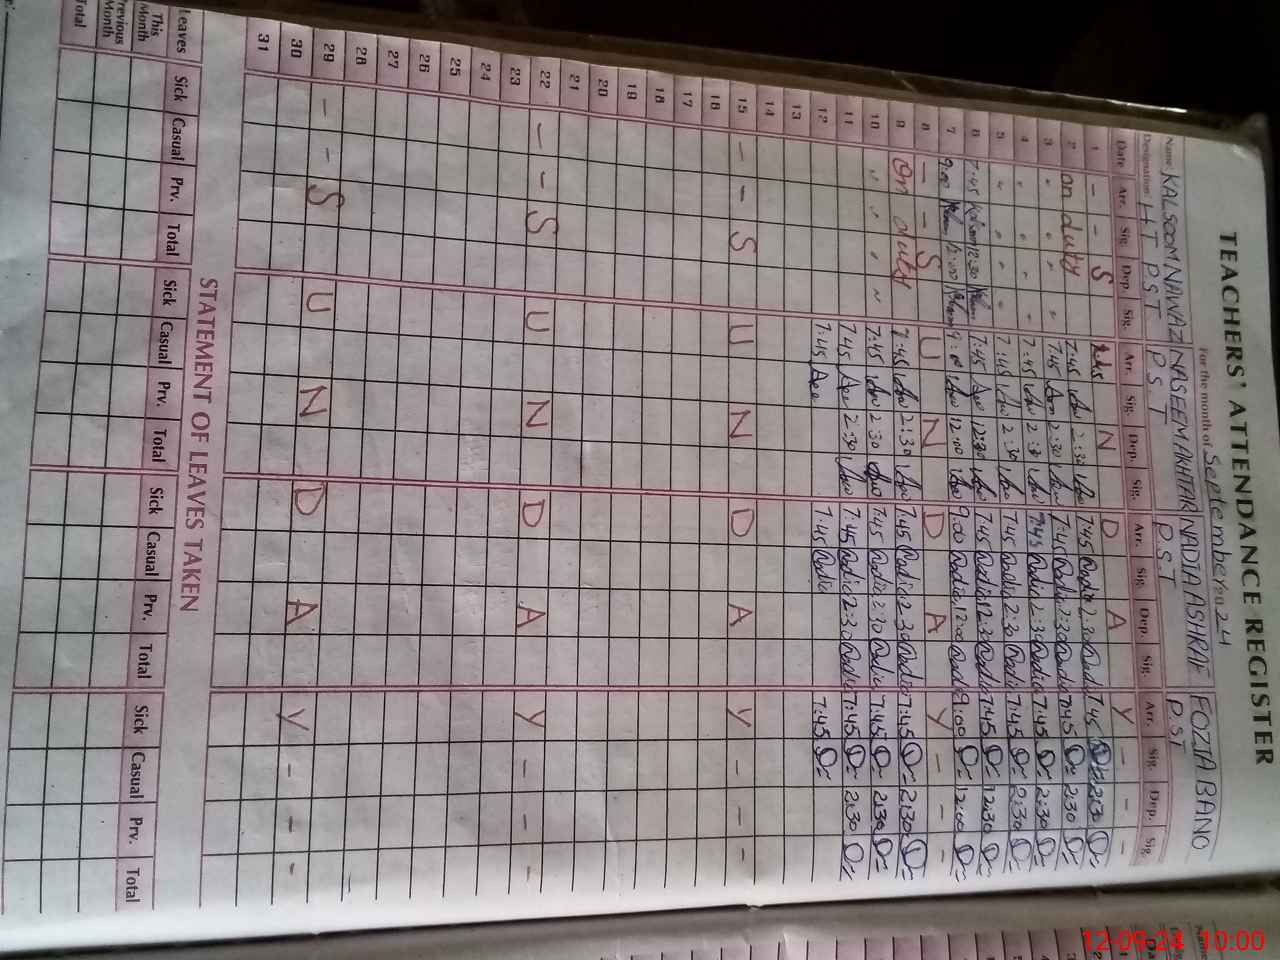 TEACHERS' ATTENDANCE REGISTER
For the month of September 2024
Name KALSOOM NAWAZ NASEEM AKHTAR NADIA ASHRAF FOZIA BANO
Designation H T P.S.T P.S.T P.S.T P.ST
Date Arr. Sig. Dep. Sig. Arr. Sig. Dep. Sig. Arr. Sig. Dep. Sig. Arr. Sig. Dep. Sig.
1 - - S U N D A Y - - -
2 on duty 7:45 2:30 7:45 Nadia 2:30 Nadia 7:45 2:30
3 " " " " 7:45 2:30 7:45 Nadia 2:30 Nadia 7:45 2:30
4 " " " " 7:45 2:30 7:45 Nadia 2:30 Nadia 7:45 2:30
5 " " " " 7:45 2:30 7:45 Nadia 2:30 Nadia 7:45 2:30
6 7:45 12:30 7:45 12:30 7:45 Nadia 12:30 Nadia 7:45 12:30
7 9:00 12:00 9:00 12:00 9:00 Nadia 12:00 Nadia 9:00 12:00
8 - - S U N D A Y - - -
9 on duty 7:45 2:30 7:45 Nadia 2:30 Nadia 7:45 2:30
10 " " " " 7:45 2:30 7:45 Nadia 2:30 Nadia 7:45 2:30
11 7:45 2:30 7:45 Nadia 2:30 Nadia 7:45 2:30
12 7:45 7:45 Nadia 7:45
13
14
15 - - S U N D A Y - - -
16
17
18
19
20
21
22 - - S U N D A Y - - -
23
24
25
26
27
28
29 - - S U N D A Y - - -
30
31
STATEMENT OF LEAVES TAKEN
Leaves Sick Casual Prv. Total Sick Casual Prv. Total Sick Casual Prv. Total Sick Casual Prv. Total
This Month
Previous Month
Total
12-09-24 10:00